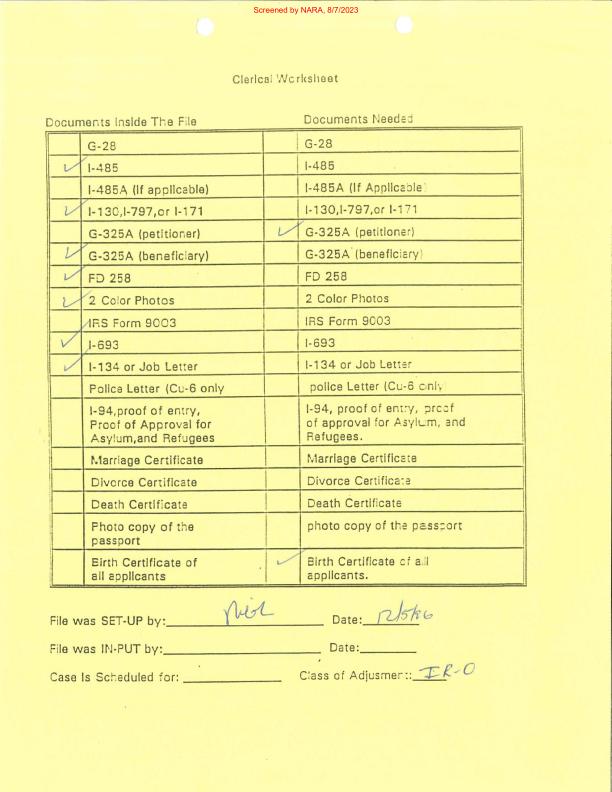 Screened by NARA, 8/7/2023
Clerical Worksheet
Documents Inside The File Documents Needed
G-28 G-28
✓ I-485 I-485
I-485A (If applicable) I-485A (If Applicable)
✓ I-130,I-797,or I-171 I-130,I-797,or I-171
G-325A (petitioner) ✓ G-325A (petitioner)
✓ G-325A (beneficiary) G-325A (beneficiary)
✓ FD 258 FD 258
✓ 2 Color Photos 2 Color Photos
IRS Form 9003 IRS Form 9003
✓ I-693 I-693
✓ I-134 or Job Letter I-134 or Job Letter
Police Letter (Cu-6 only police Letter (Cu-6 only
I-94,proof of entry, I-94, proof of entry, proof
Proof of Approval for of approval for Asylum, and
Asylum,and Refugees Refugees.
Marriage Certificate Marriage Certificate
Divorce Certificate Divorce Certificate
Death Certificate Death Certificate
Photo copy of the photo copy of the passport
passport
Birth Certificate of ✓ Birth Certificate of all
all applicants applicants.
File was SET-UP by: Date: 12/5/96
File was IN-PUT by: Date:
Case Is Scheduled for: Class of Adjusment: IR-0